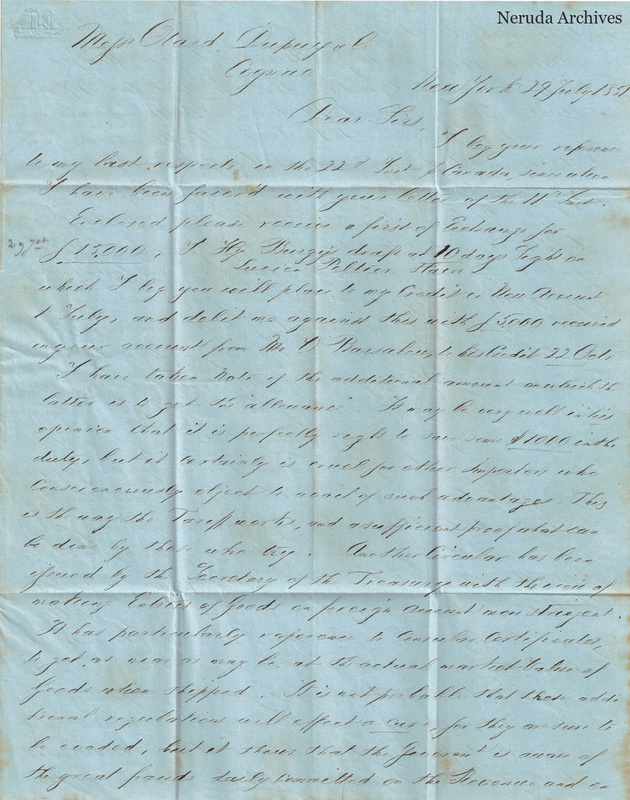 Neruda Archives
Mess Otard, Dupuy & Co
Cognac
New York 29 July 1851
Dear Sirs,
I beg your reference
to my last respects, on the 22d Inst p Canada, since when
I have been favored with your letter of the 11 Inst.
Enclosed please receive a first of Exchange for
£ 15,000, draft at 10 days Sight on
which I beg you will place to my Credit in New Account
1 July, and debit me against this with £ 5,000 received
on your account from Mr to his Credit 22 Oct
I have taken note of the additional amount on which the
latter is to get the "allowance". It may be very well in his
opinion that it is perfectly right to save some $1000 in the
duty, but it certainly is cruel for other Importers who
Conscienciously object to avail of such advantages. This
is the way the Tariff works, and a sufficient proof what can
be done by those who try. Another Circular has been
issued by the Secretary of the Treasury with the view of
making Entries of Goods on foreign account more stringent.
It has particularly reference to Consular Certificates,
to get as near as may be at the actual market Value of
Goods when shipped. It is not probable that these addi
tional regulations will effect a cure, for they are sure to
be evaded, but it shows that the Governmt is aware of
the great frauds daily committed on the Revenue and on